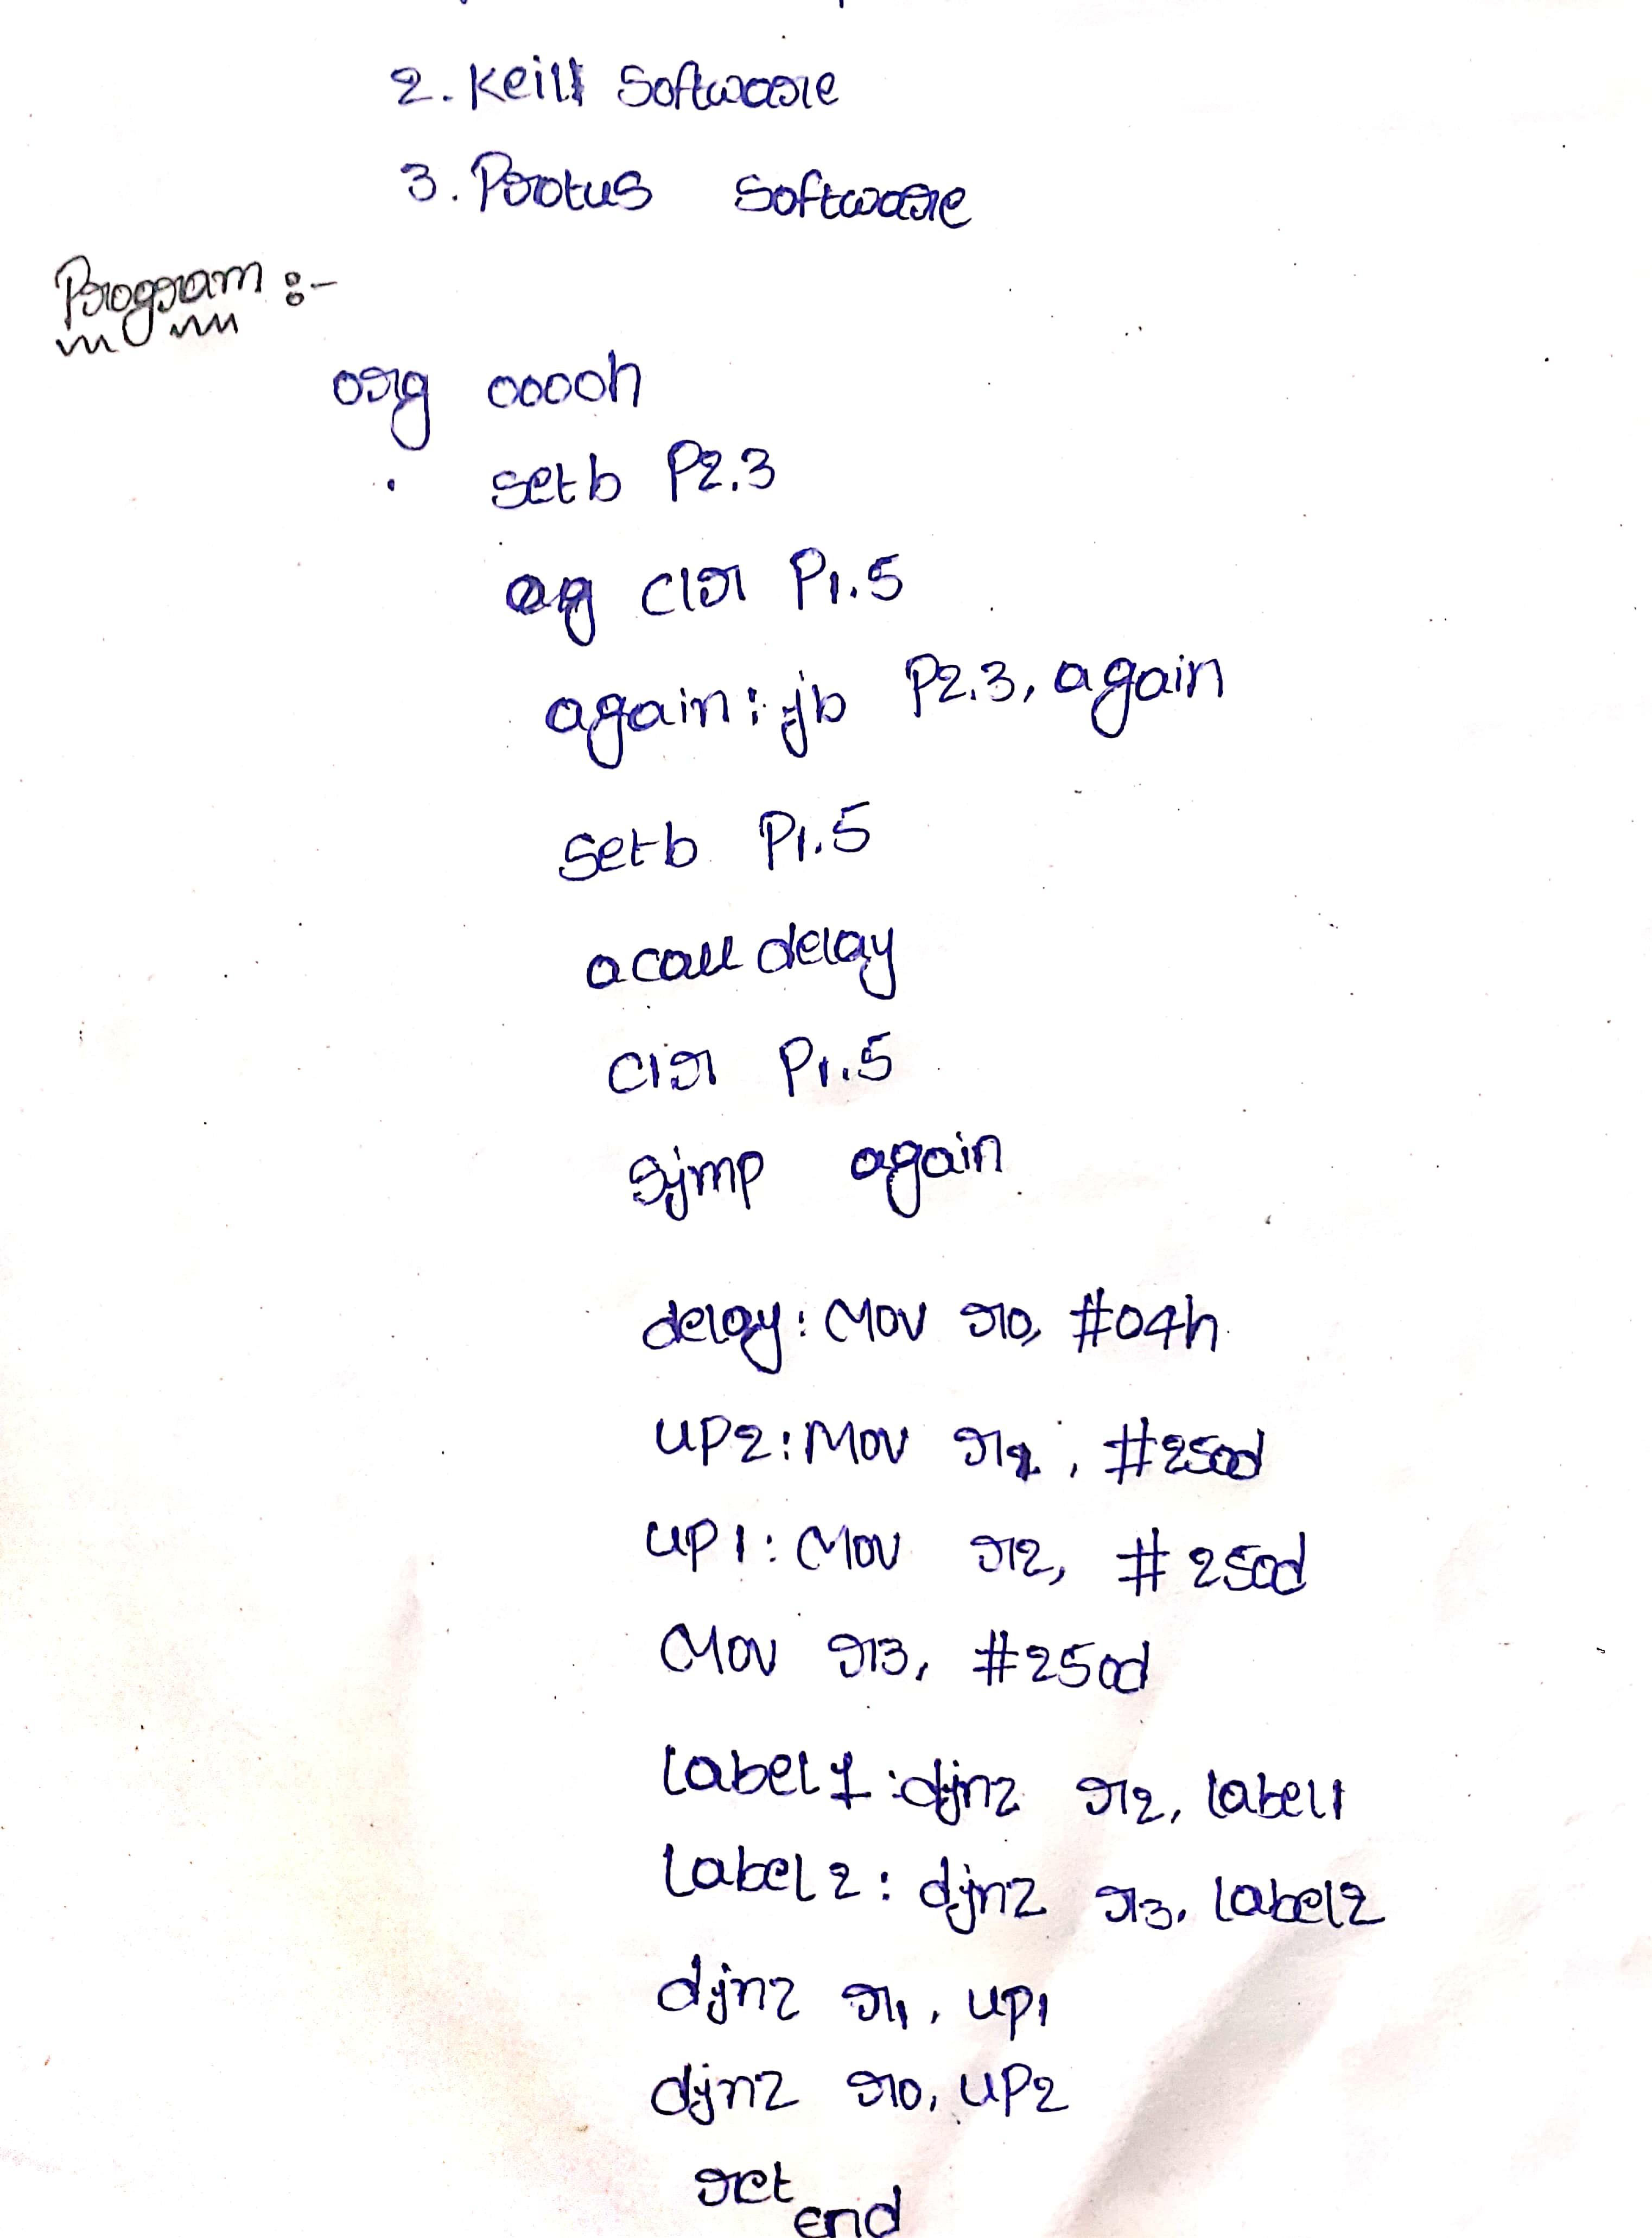 2. Keil Software
3. Protus Software
Program :-
org 0000h
setb P2.3
clr P1.5
again: jb P2.3, again
setb P1.5
acall delay
clr P1.5
Sjmp again
delay: Mov r0, #04h
UP2: Mov r1, #250d
UP1: Mov r2, #250d
Mov r3, #250d
label1: djnz r2, label1
label2: djnz r3, label2
djnz r1, up1
djnz r0, UP2
ret
end